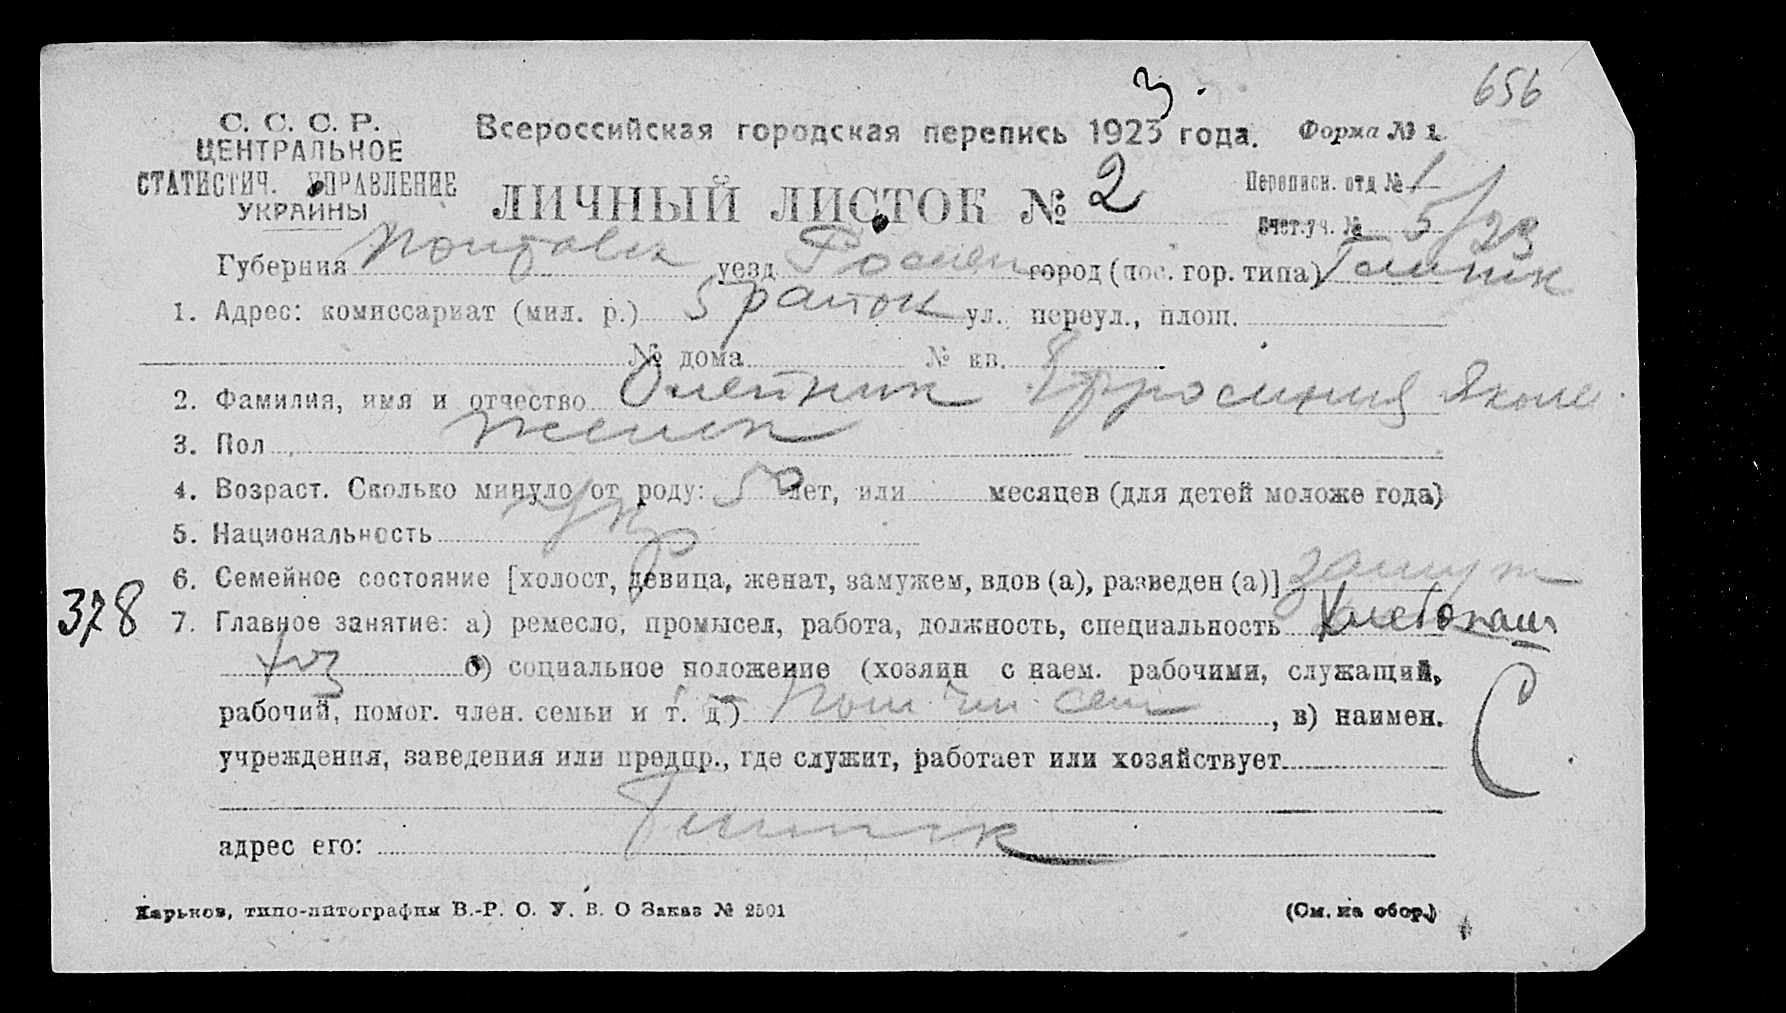 656
С. С. С. Р.
ЦЕНТРАЛЬНОЕ
СТАТИСТИЧ. УПРАВЛЕНИЕ
УКРАИНЫ
Всероссийская городская перепись 1923 года.
3
Форма № 1
ЛИЧНЫЙ ЛИСТОК № 2
Переписн. отд № 1
Счет.уч. № 5/23
Губерния Полтавск уезд Ромен город (пос. гор. типа) Глинск
1. Адрес: комиссариат (мил. р.) 5 район ул. переул., площ.
№ дома № кв. 8
2. Фамилия, имя и отчество Олейник Ефросиния Яковл
3. Пол женск
4. Возраст. Сколько минуло от роду: 50 лет, или месяцев (для детей моложе года)
5. Национальность Укр
6. Семейное состояние [холост, девица, женат, замужем, вдов (а), разведен (а)] замуж
378
7. Главное занятие: а) ремесло, промысел, работа, должность, специальность Хлебопаш
б) социальное положение (хозяин с наем. рабочими, служащий,
рабочий, помог. член. семьи и т. д.) пом. чл. сем , в) наимен.
С
учреждения, заведения или предпр., где служит, работает или хозяйствует
адрес его: Глинск
Харьков, типо-литография В.-Р. О. У. В. О Заказ № 2501
(См. на обор.)